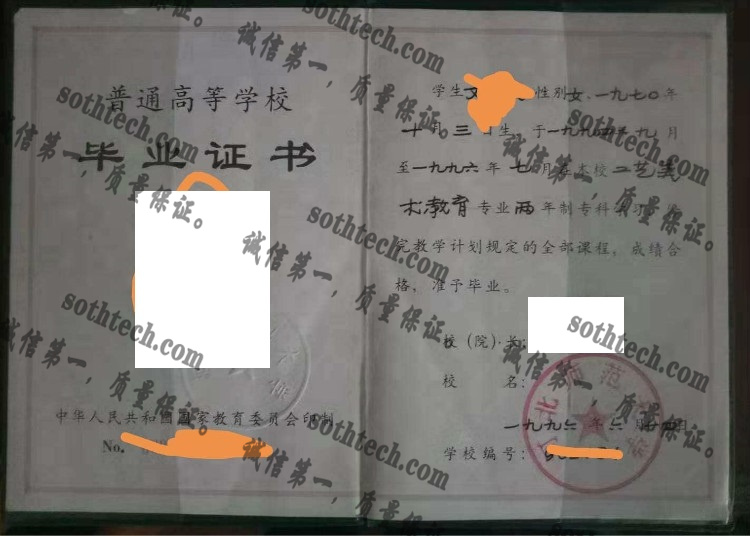 普通高等学校
毕业证书
中华人民共和国国家教育委员会印制
No.
学生 性别女、一九七〇年
十月三日生，于一九九四年九月
至一九九六年七月在本校工艺美
术教育专业两年制专科学习，
完教学计划规定的全部课程，成绩合
格，准予毕业。
校（院）长：
校 名：
一九九六年六月 日
学校编号：
北师范
sothtech.com
诚信第一，质量保证。
sothtech.com
诚信第一，质量保证。
sothtech.com
诚信第一，质量保证。
sothtech.com
诚信第一，质量保证。
sothtech.com
诚信第一，质量保证。
sothtech.com
诚信第一，质量保证。
sothtech.com
诚信第一，质量保证。
sothtech.com
诚信第一，质量保证。